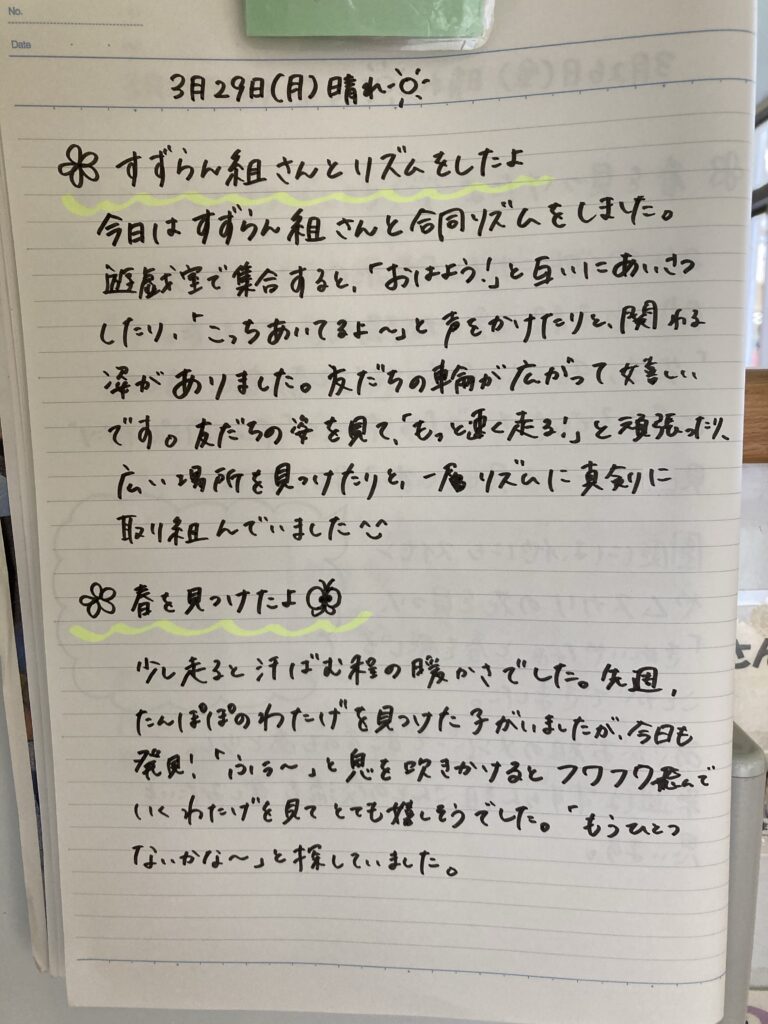 No.
Date
3月29日(月)晴れ
すずらん組さんとリズムをしたよ
今日はすずらん組さんと合同リズムをしました。
遊戯室で集合すると、「おはよう!」と互いにあいさつ
したり、「こっちあいてるよ～」と声をかけたりと、関わる
姿がありました。友だちの輪が広がって嬉しい
です。友だちの姿を見て、「もっと速く走る!」と頑張ったり、
広い場所を見つけたりと、一層リズムに真剣に
取り組んでいました
春を見つけたよ
少し走ると汗ばむ程の暖かさでした。先週,
たんぽぽのわたげを見つけた子がいましたが、今日も
発見!「ふぅ～」と息を吹きかけるとフワフワ飛んで
いくわたげを見てとても嬉しそうでした。「もうひとつ
ないかな～」と探していました。
さん